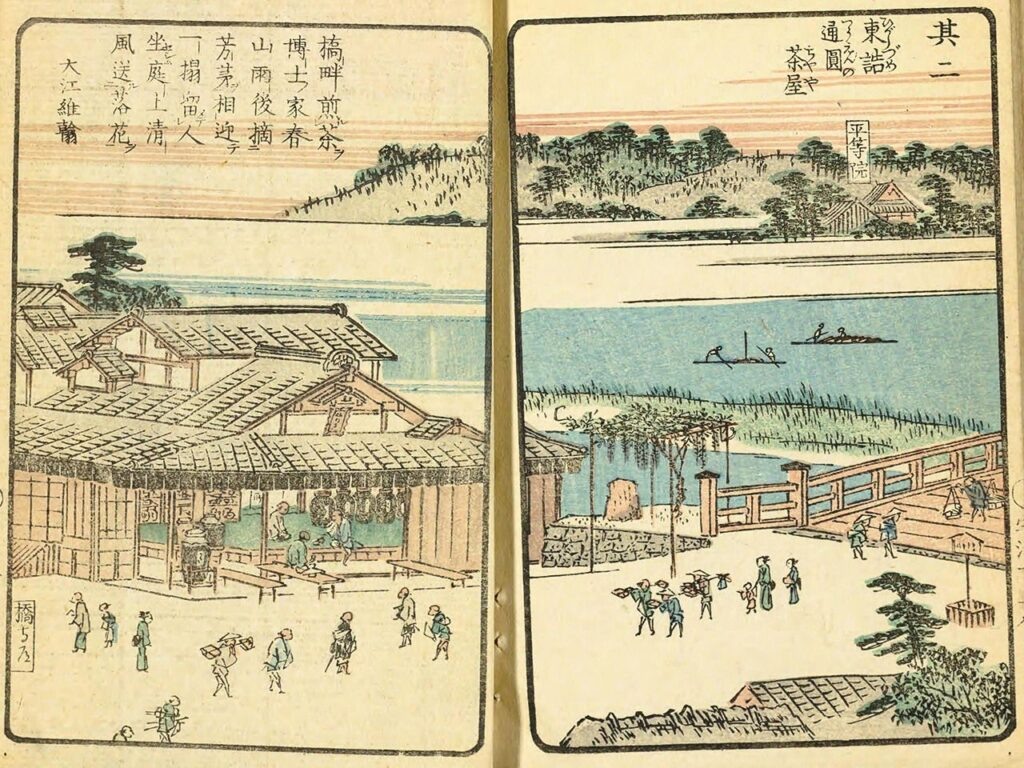 其二
東詰
通圓
茶屋
平等院
橋畔煎茶
博士家春
山雨後摘
芳芽相迎
一榻留人
坐庭上清
風送落花
大江維翰